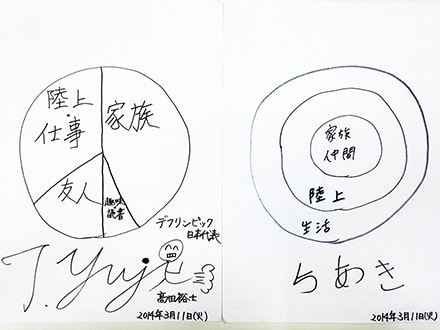 陸上・
仕事
家族
友人
趣味・
読書
デフリンピック
日本代表
T.Yuji
高田裕士
2014年3月11日(火)
家族
仲間
陸上
生活
ちあき
2014年3月11日(火)